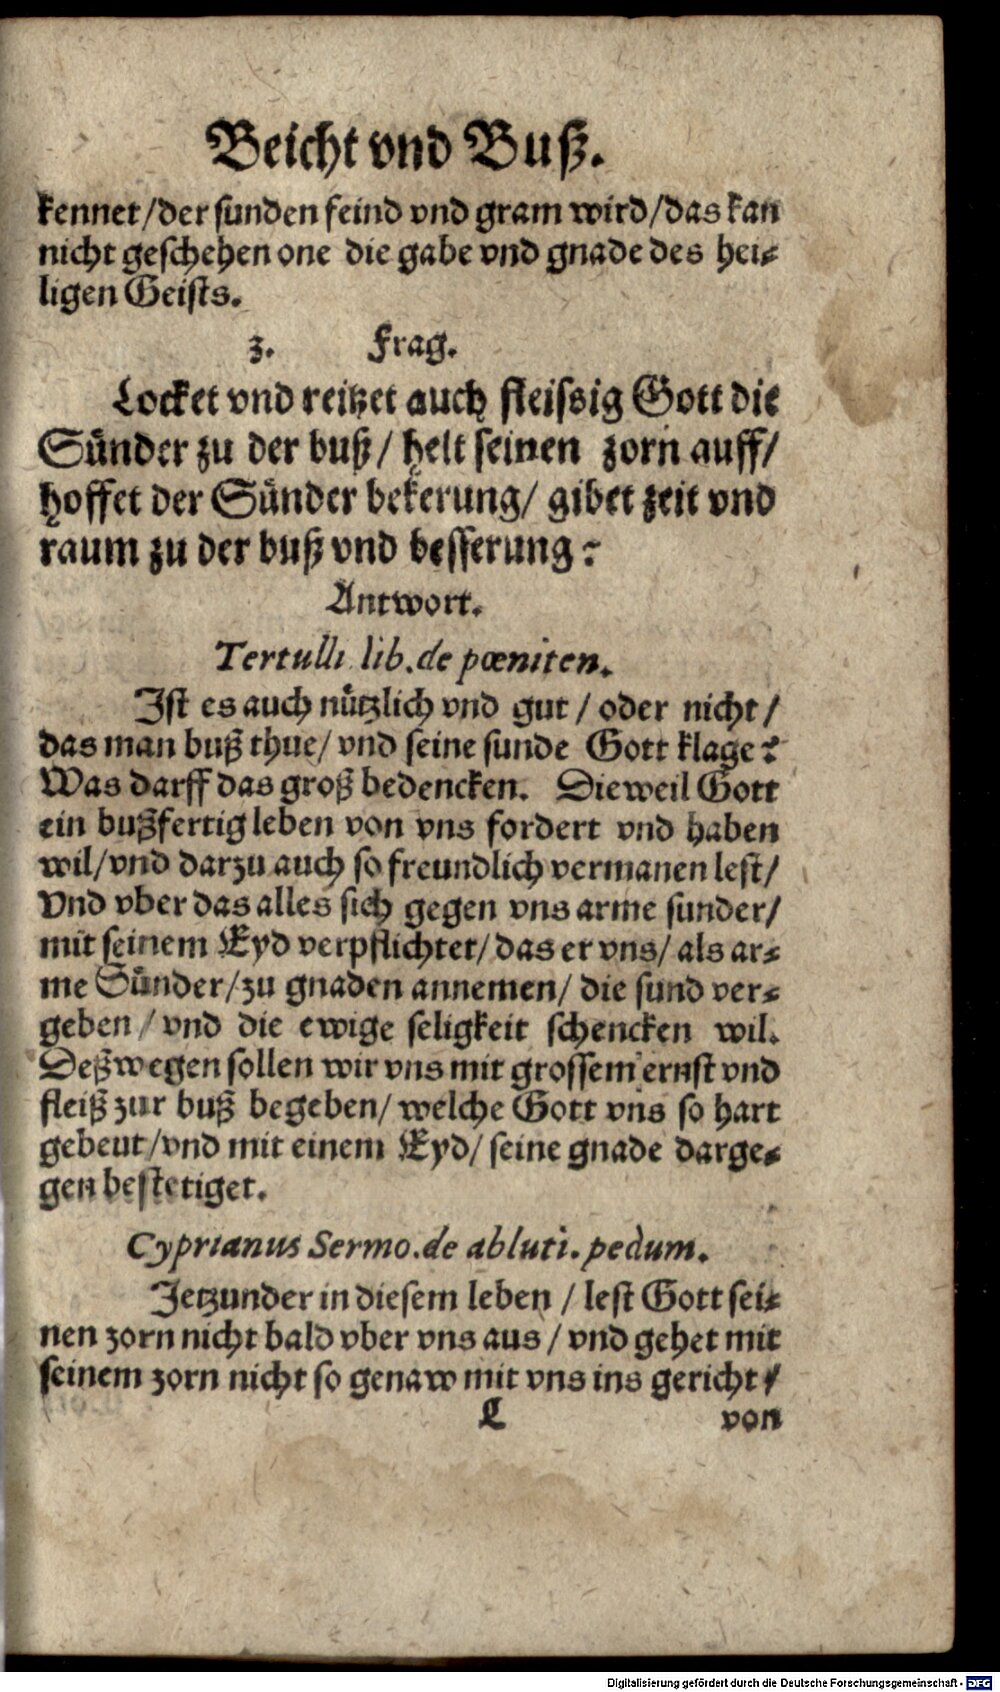 Beicht vnd Buß.
kennet/der sunden feind vnd gram wird/das kan
nicht geschehen one die gabe vnd gnade des hei-
ligen Geists.
3. Frag.
Locket vnd reitzet auch fleissig Gott die
Sünder zu der buß/ helt seinen zorn auff/
hoffet der Sünder bekerung/ gibet zeit vnd
raum zu der buß vnd besserung?
Antwort.
Tertulli lib. de pœniten.
Ist es auch nützlich vnd gut / oder nicht /
das man buß thue/ vnd seine sunde Gott klage?
Was darff das groß bedencken. Dieweil Gott
ein bußfertig leben von vns fordert vnd haben
wil/vnd darzu auch so freundlich vermanen lest/
Vnd vber das alles sich gegen vns arme sunder/
mit seinem Eyd verpflichtet/das er vns/ als ar-
me Sünder/zu gnaden annemen/ die sund ver-
geben / vnd die ewige seligkeit schencken wil.
Deßwegen sollen wir vns mit grossem ernst vnd
fleiß zur buß begeben/ welche Gott vns so hart
gebeut/vnd mit einem Eyd/ seine gnade darge-
gen bestetiget.
Cyprianus Sermo. de abluti. pedum.
Jetzunder in diesem leben / lest Gott sei-
nen zorn nicht bald vber vns aus / vnd gehet mit
seinem zorn nicht so genaw mit vns ins gericht /
C von
Digitalisierung gefördert durch die Deutsche Forschungsgemeinschaft - DFG